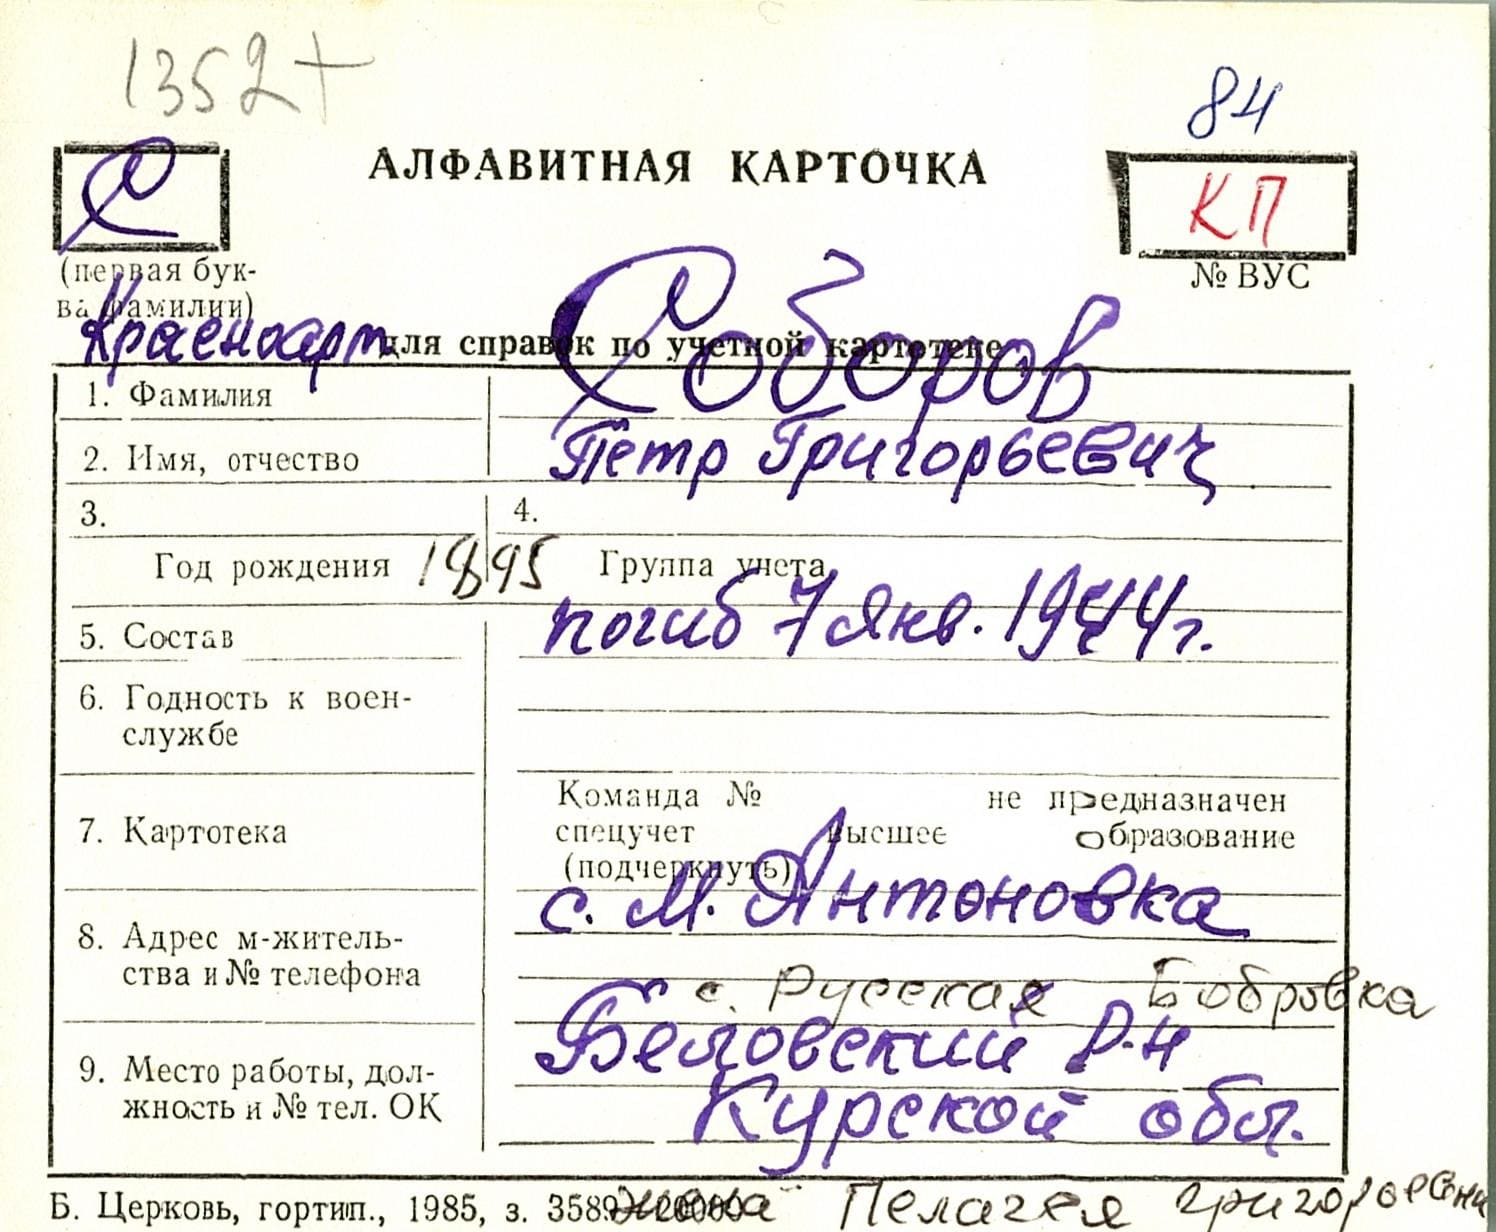 1352+
84
С
АЛФАВИТНАЯ КАРТОЧКА
КП
(первая бук-
ва фамилии)
№ ВУС
Красноарм.
для справок по учетной картотеке
1. Фамилия
Соборов
2. Имя, отчество
Пётр Григорьевич
3.
4.
Год рождения 1895
Группа учета
погиб 7 янв. 1944 г.
5. Состав
6. Годность к воен-
службе
7. Картотека
Команда № не предназначен
спецучет высшее образование
(подчеркнуть)
с. М. Антоновка
8. Адрес м-житель-
ства и № телефона
с. Русская Бобровка
Беловский р-н
9. Место работы, дол-
жность и № тел. ОК
Курской обл.
Б. Церковь, гортип., 1985, з. 3589
жена Пелагея Григорьевна